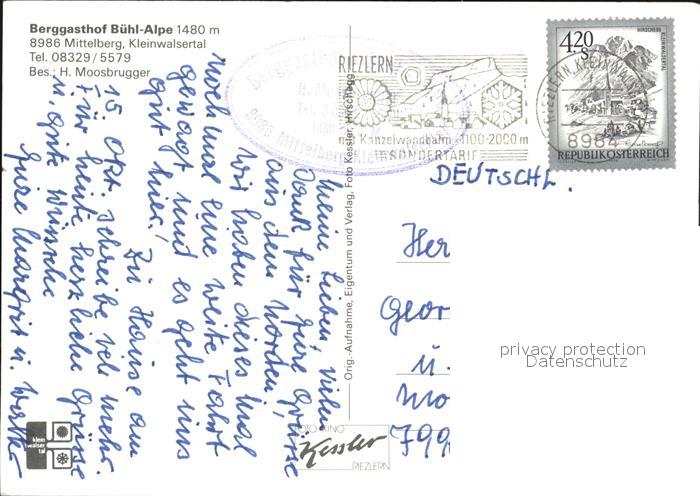 Berggasthof Bühl-Alpe 1480 m
8986 Mittelberg, Kleinwalsertal
Tel. 08329/5579
Bes.: H. Moosbrugger
Berggasthof
8986 Mittelberg, Klein
RIEZLERN
Kanzelwandbahn 1100-2000 m
SONDERTARIF
RIEZLERN KLEINWALSERTAL
8984
4,20
S
HIRSCHEGG
KLEINWALSERTAL
REPUBLIK ÖSTERREICH
DEUTSCHL.
Her
Geor
u.
Mo
799
privacy protection
Datenschutz
Meine Lieben, Vielen
Dank für Eure Grüsse
aus dem Norden!
Wir haben dieses Mal
noch mal eine weite Fahrt
gewagt und es geht uns
gut hier!
Zu Hause am
15. Okt. schreibe ich mehr.
Für heute herzliche Grüsse
u. gute Wünsche
Eure Margrit u. Walter
Orig.-Aufnahme, Eigentum und Verlag, Foto Kessler, Hirschegg
klein
walser
tal
FOTO KINO
Kessler
RIEZLERN